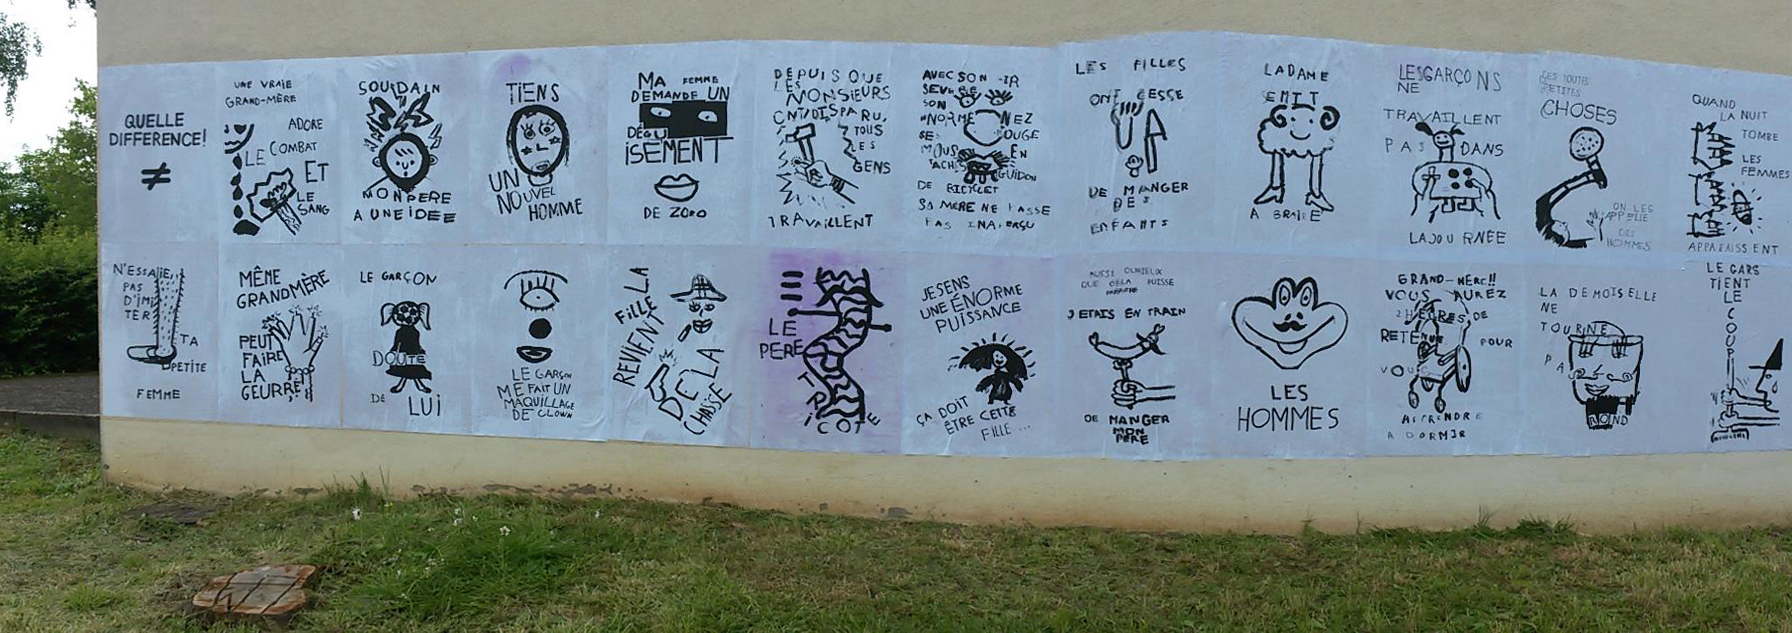 QUELLE
DIFFERENCE!
≠
UNE VRAIE
GRAND-MÈRE
ADORE
LE COMBAT
ET
LE
SANG
SOUDAIN
MON PERE
A UNE IDEE
TIENS
UN
NOUVEL
HOMME
MA FEMME
DEMANDE UN
DÉGU
ISEMENT
DE ZORO
DEPUIS QUE
LES
MONSIEURS
ONT DISPARU,
TOUS
LES
GENS
TRAVAILLENT
AVEC SON
SON
NEZ
ROUGE
SES
MOUS
EN
TACHES
GUIDON
DE BICYCLET
SA MERE NE PASSE
PAS INAPERÇU
LES FILLES
ONT CESSE
DE MANGER
DES
ENFANTS
LA DAME
EMIT
A BRAIRE
LES GARÇONS
NE
TRAVAILLENT
PAS DANS
LA JOURNÉE
CES TOUTES
PETITES
CHOSES
ON LES
APPELLE
DES
HOMMES
QUAND
LA NUIT
TOMBE
LES
FEMMES
APPARAISSENT
N'ESSAIE
PAS
D'IMI
TER
TA
PETITE
FEMME
MÊME
GRANDMÈRE
PEUT
FAIRE
LA
GEURRE
LE GARÇON
DOUTE
DE LUI
LE GARÇON
ME FAIT UN
MAQUILLAGE
DE CLOWN
LA
FILLE
REVIENT
DE LA
CHASSE
LE
PERE
TRICOTE
JE SENS
UNE ÉNORME
PUISSANCE
ÇA DOIT
ÊTRE CETTE
FILLE ...
AUSSI CURIEUX
QUE CELA PUISSE
PARAITRE
J'ETAIS EN TRAIN
DE MANGER
MON
PÈRE
LES
HOMMES
GRAND-MÈRE!!
VOUS AUREZ
2 HEURES DE
RETENUE POUR
VOUS
APPRENDRE
A DORMIR
LA DEMOISELLE
NE
TOURNE
PAS
ROND
LE GARS
TIENT
LE
COUP